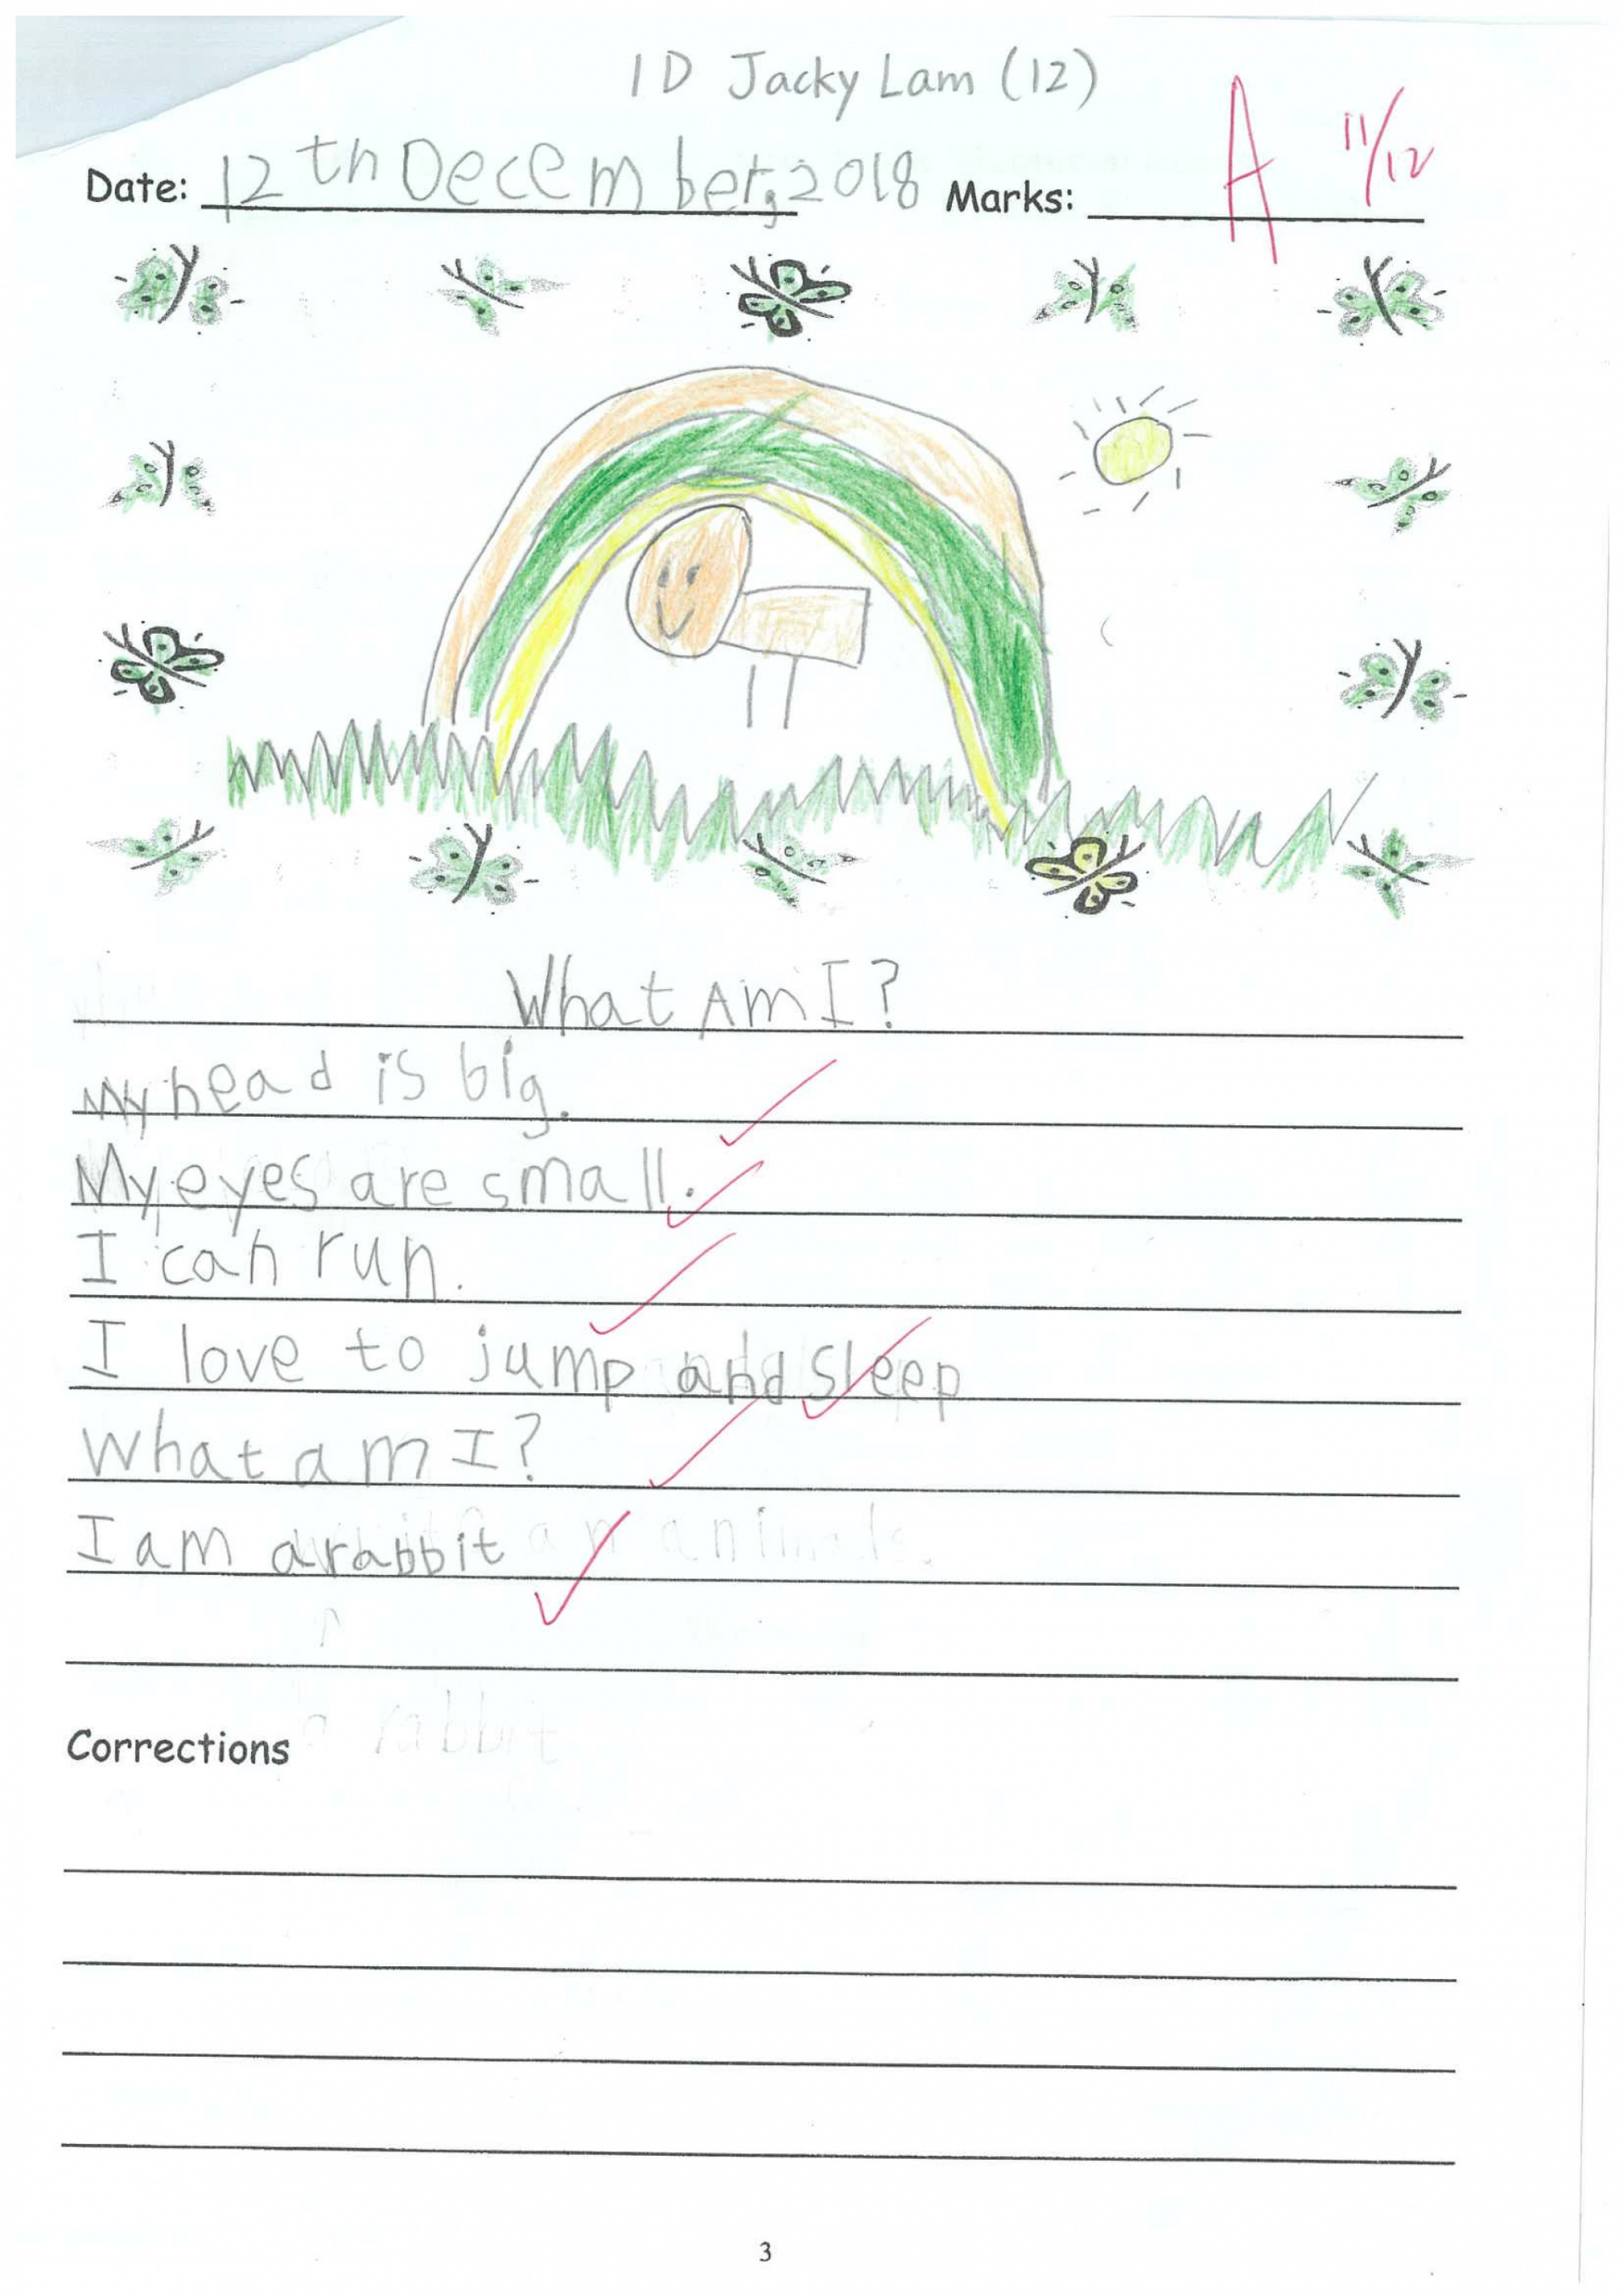 1D Jacky Lam (12)
Date: 12th December, 2018 Marks: A 11/12
What Am I?
My head is big.
My eyes are small.
I can run.
I love to jump and sleep
What am I?
I am a rabbit
a rabbit
Corrections
3